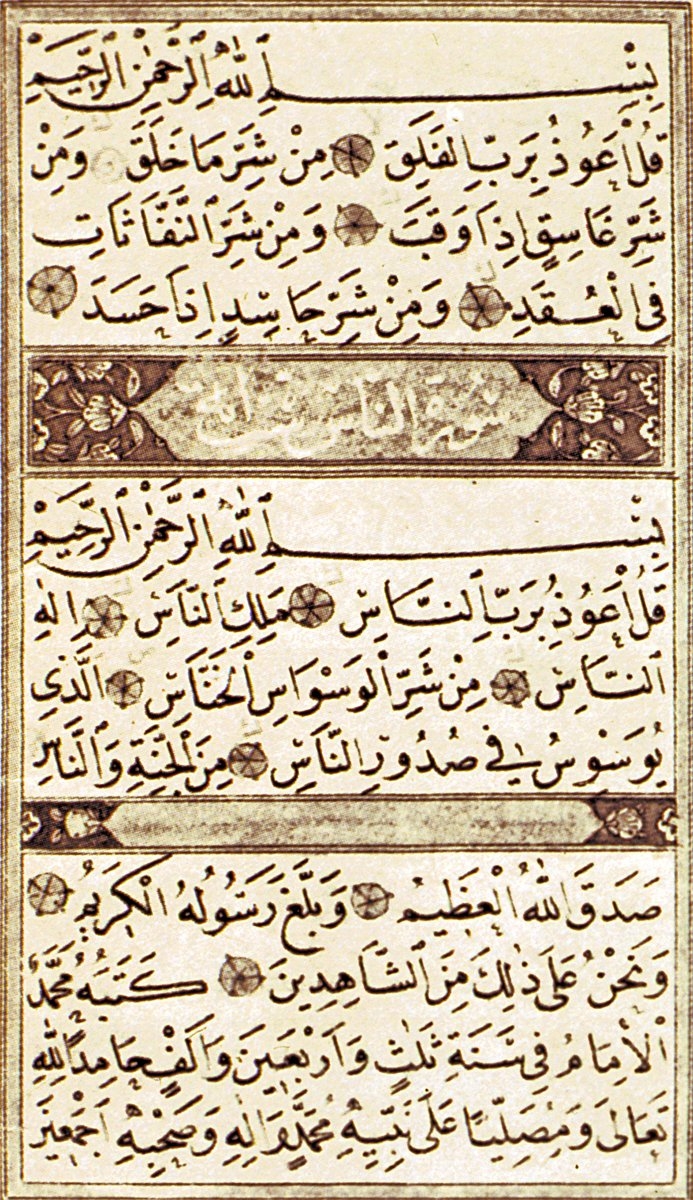 بِسْمِ ٱللّٰهِ ٱلرَّحْمٰنِ ٱلرَّحِيمِ
قُلْ أَعُوذُ بِرَبِّ ٱلْفَلَقِ مِنْ شَرِّ مَا خَلَقَ وَمِنْ
شَرِّ غَاسِقٍ إِذَا وَقَبَ وَمِنْ شَرِّ ٱلنَّفَّاثَاتِ
فِي ٱلْعُقَدِ وَمِنْ شَرِّ حَاسِدٍ إِذَا حَسَدَ
سورة الناس ست آيات
بِسْمِ ٱللّٰهِ ٱلرَّحْمٰنِ ٱلرَّحِيمِ
قُلْ أَعُوذُ بِرَبِّ ٱلنَّاسِ مَلِكِ ٱلنَّاسِ إِلٰهِ
ٱلنَّاسِ مِنْ شَرِّ ٱلْوَسْوَاسِ ٱلْخَنَّاسِ ٱلَّذِي
يُوَسْوِسُ فِي صُدُورِ ٱلنَّاسِ مِنَ ٱلْجِنَّةِ وَٱلنَّاسِ
صَدَقَ ٱللّٰهُ ٱلْعَظِيمُ وَبَلَّغَ رَسُولُهُ ٱلْكَرِيمُ
وَنَحْنُ عَلَى ذٰلِكَ مِنَ ٱلشَّاهِدِينَ كَتَبَهُ مُحَمَّدٌ
ٱلْأِمَامُ فِي سَنَةِ ثَلٰثٍ وَأَرْبَعِينَ وَأَلْفٍ حَامِدًا لِلّٰهِ
تَعَالَى وَمُصَلِّيًا عَلَى نَبِيِّهِ مُحَمَّدٍ وَآلِهِ وَصَحْبِهِ أَجْمَعِينَ